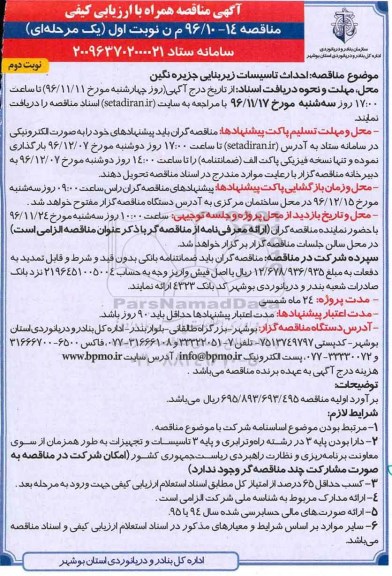 آگهی مناقصه همراه با ارزیابی کیفی
مناقصه ۱۴-۹۶/۱۰ م ن نوبت اول (یک مرحله‌ای)
سامانه ستاد ۲۰۰۹۶۳۷۰۲۰۰۰۰۲۱
سازمان بنادر و دریانوردی
اداره کل بنادر و دریانوردی استان بوشهر
نوبت دوم
موضوع مناقصه: احداث تاسیسات زیربنایی جزیره نگین
محل، مهلت و نحوه دریافت اسناد: از تاریخ درج آگهی (روز چهارشنبه مورخ ۹۶/۱۱/۱۱) تا ساعت
۱۷:۰۰ روز سه‌شنبه مورخ ۹۶/۱۱/۱۷ با مراجعه به سایت (setadiran.ir) اسناد مناقصه را دریافت
نمایند.
- محل و مهلت تسلیم پاکت پیشنهادها: مناقصه گران باید پیشنهادهای خود را به صورت الکترونیکی
در سامانه ستاد به آدرس (setadiran.ir) تا ساعت ۱۷:۰۰ روز دوشنبه مورخ ۹۶/۱۲/۰۷ بارگذاری
نموده و تنها نسخه فیزیکی پاکت الف (ضمانتنامه) را تا ساعت ۱۴:۰۰ روز دوشنبه مورخ ۹۶/۱۲/۰۷ به
دبیرخانه مناقصه گزار با رعایت موارد مندرج در اسناد مناقصه تحویل دهند.
- محل وزمان بازگشایی پاکت پیشنهادها: پیشنهادهای مناقصه گران راس ساعت ۰۹:۰۰ روز سه‌شنبه
مورخ ۹۶/۱۲/۱۵ در محل ساختمان مرکزی به آدرس دستگاه مناقصه گزار مفتوح خواهد شد.
- محل و تاریخ بازدید از محل پروژه و جلسه توجیهی: ساعت ۱۰:۰۰ روز سه‌شنبه مورخ ۹۶/۱۱/۲۴
با حضور نماینده مناقصه گران (ارائه معرفی‌نامه از مناقصه گر با ذکر عنوان مناقصه الزامی است)
در محل سالن جلسات مناقصه گزار برگزار خواهد شد.
سپرده شرکت در مناقصه: مناقصه گران باید ضمانتنامه بانکی بدون قید و شرط و قابل تمدید به
دفعات به مبلغ ۱۲/۶۷۸/۹۳۶/۹۳۵ ریال یا اصل فیش واریز وجه به حساب ۲۱۹۶۴۵۱۰۰۵۰۰۴ نزد بانک
صادرات شعبه بندر و دریانوردی بوشهر کد بانک ۴۳۲۳ ارائه نمایند.
- مدت پروژه: ۲۴ ماه شمسی
- مدت اعتبار پیشنهادها: مدت اعتبار پیشنهادها حداقل باید ۹۰ روز باشد.
- آدرس دستگاه مناقصه گزار: بوشهر- بزرگراه طالقانی- بلوار بندر- اداره کل بنادر و دریانوردی استان
بوشهر- کدپستی ۷۵۱۳۷۴۹۷۹۷- تلفن ۷-۳۳۳۲۲۰۵۱ و ۳۱۶۶۶۱۰۸-۰۷۷، فاکس ۶۵۰۰-۳۱۶۶۶۷۰۰
و ۳۳۳۳۰۰۷۲-۰۷۷ پست الکترونیک info@bpmo.ir، آدرس سایت www.bpmo.ir
هزینه درج آگهی به عهده برنده مناقصه می‌باشد.
توضیحات:
برآورد اولیه مناقصه ۶۹۵/۸۹۳/۶۹۳/۴۹۵ ریال می‌باشد.
شرایط لازم:
۱- مرتبط بودن موضوع اساسنامه شرکت با موضوع مناقصه.
۲- دارا بودن پایه ۳ در رشته راه و ترابری و پایه ۳ تاسیسات و تجهیزات به طور همزمان از سوی
معاونت برنامه‌ریزی و نظارت راهبردی ریاست‌جمهوری کشور (امکان شرکت در مناقصه به
صورت مشارکت چند مناقصه گر وجود ندارد)
۳- کسب حداقل ۶۵ درصد از امتیاز کل مطابق اسناد استعلام ارزیابی کیفی جهت ورود به مرحله بعد.
۴- ارائه مدارک مربوط به شناسه ملی شرکت الزامی است.
۵- ارائه صورت های مالی حسابرسی شده سال ۹۴ یا ۹۵.
۶- سایر موارد بر اساس شرایط و معیارهای مذکور در اسناد استعلام ارزیابی کیفی و اسناد مناقصه
می‌باشد.
اداره کل بنادر و دریانوردی استان بوشهر